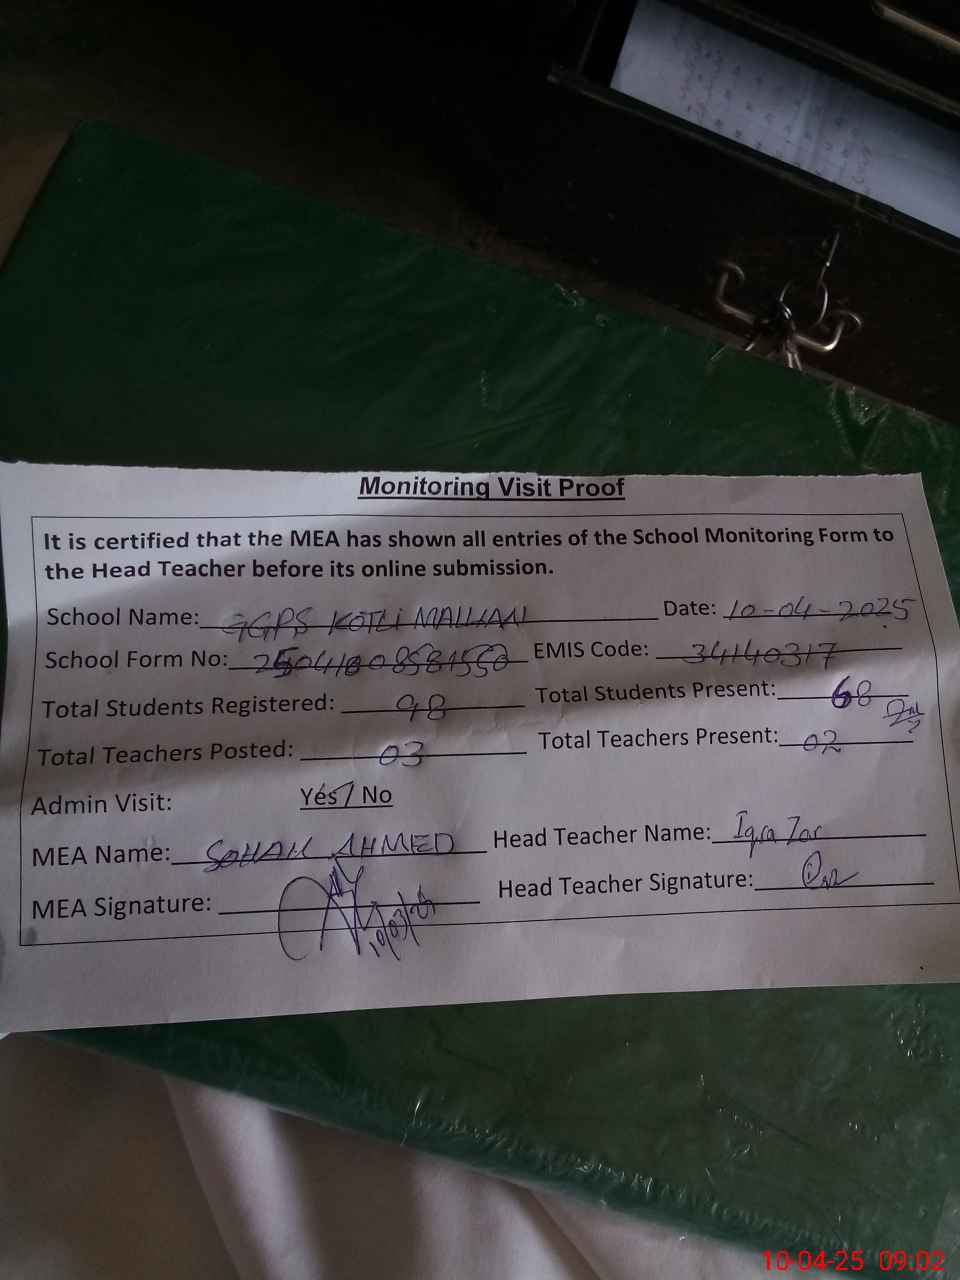 Monitoring Visit Proof
It is certified that the MEA has shown all entries of the School Monitoring Form to
the Head Teacher before its online submission.
School Name: GGPS KOTLI MALLIAN Date: 10-04-2025
School Form No: EMIS Code: 34140317
Total Students Registered: 98 Total Students Present: 68
Total Teachers Posted: 03 Total Teachers Present: 02
Admin Visit: Yes / No
MEA Name: SOHAIL AHMED Head Teacher Name: Iqra
MEA Signature: Head Teacher Signature:
10-04-25 09:02